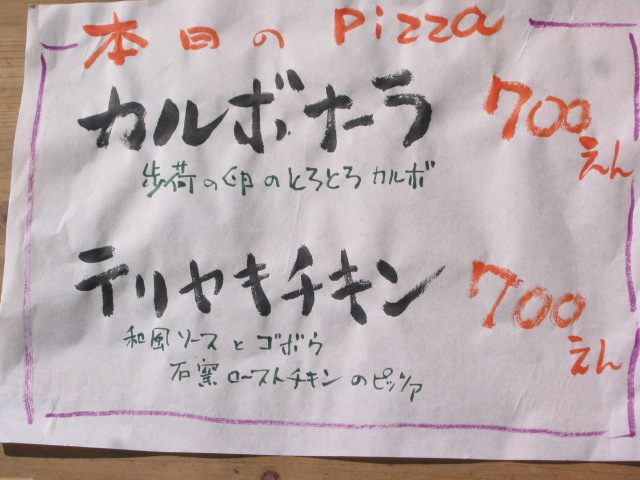 本日の Pizza
カルボナーラ 700えん
歩荷の卵のとろとろカルボ
テリヤキチキン 700えん
和風ソースとゴボウ
石窯ローストチキンのピッツァ